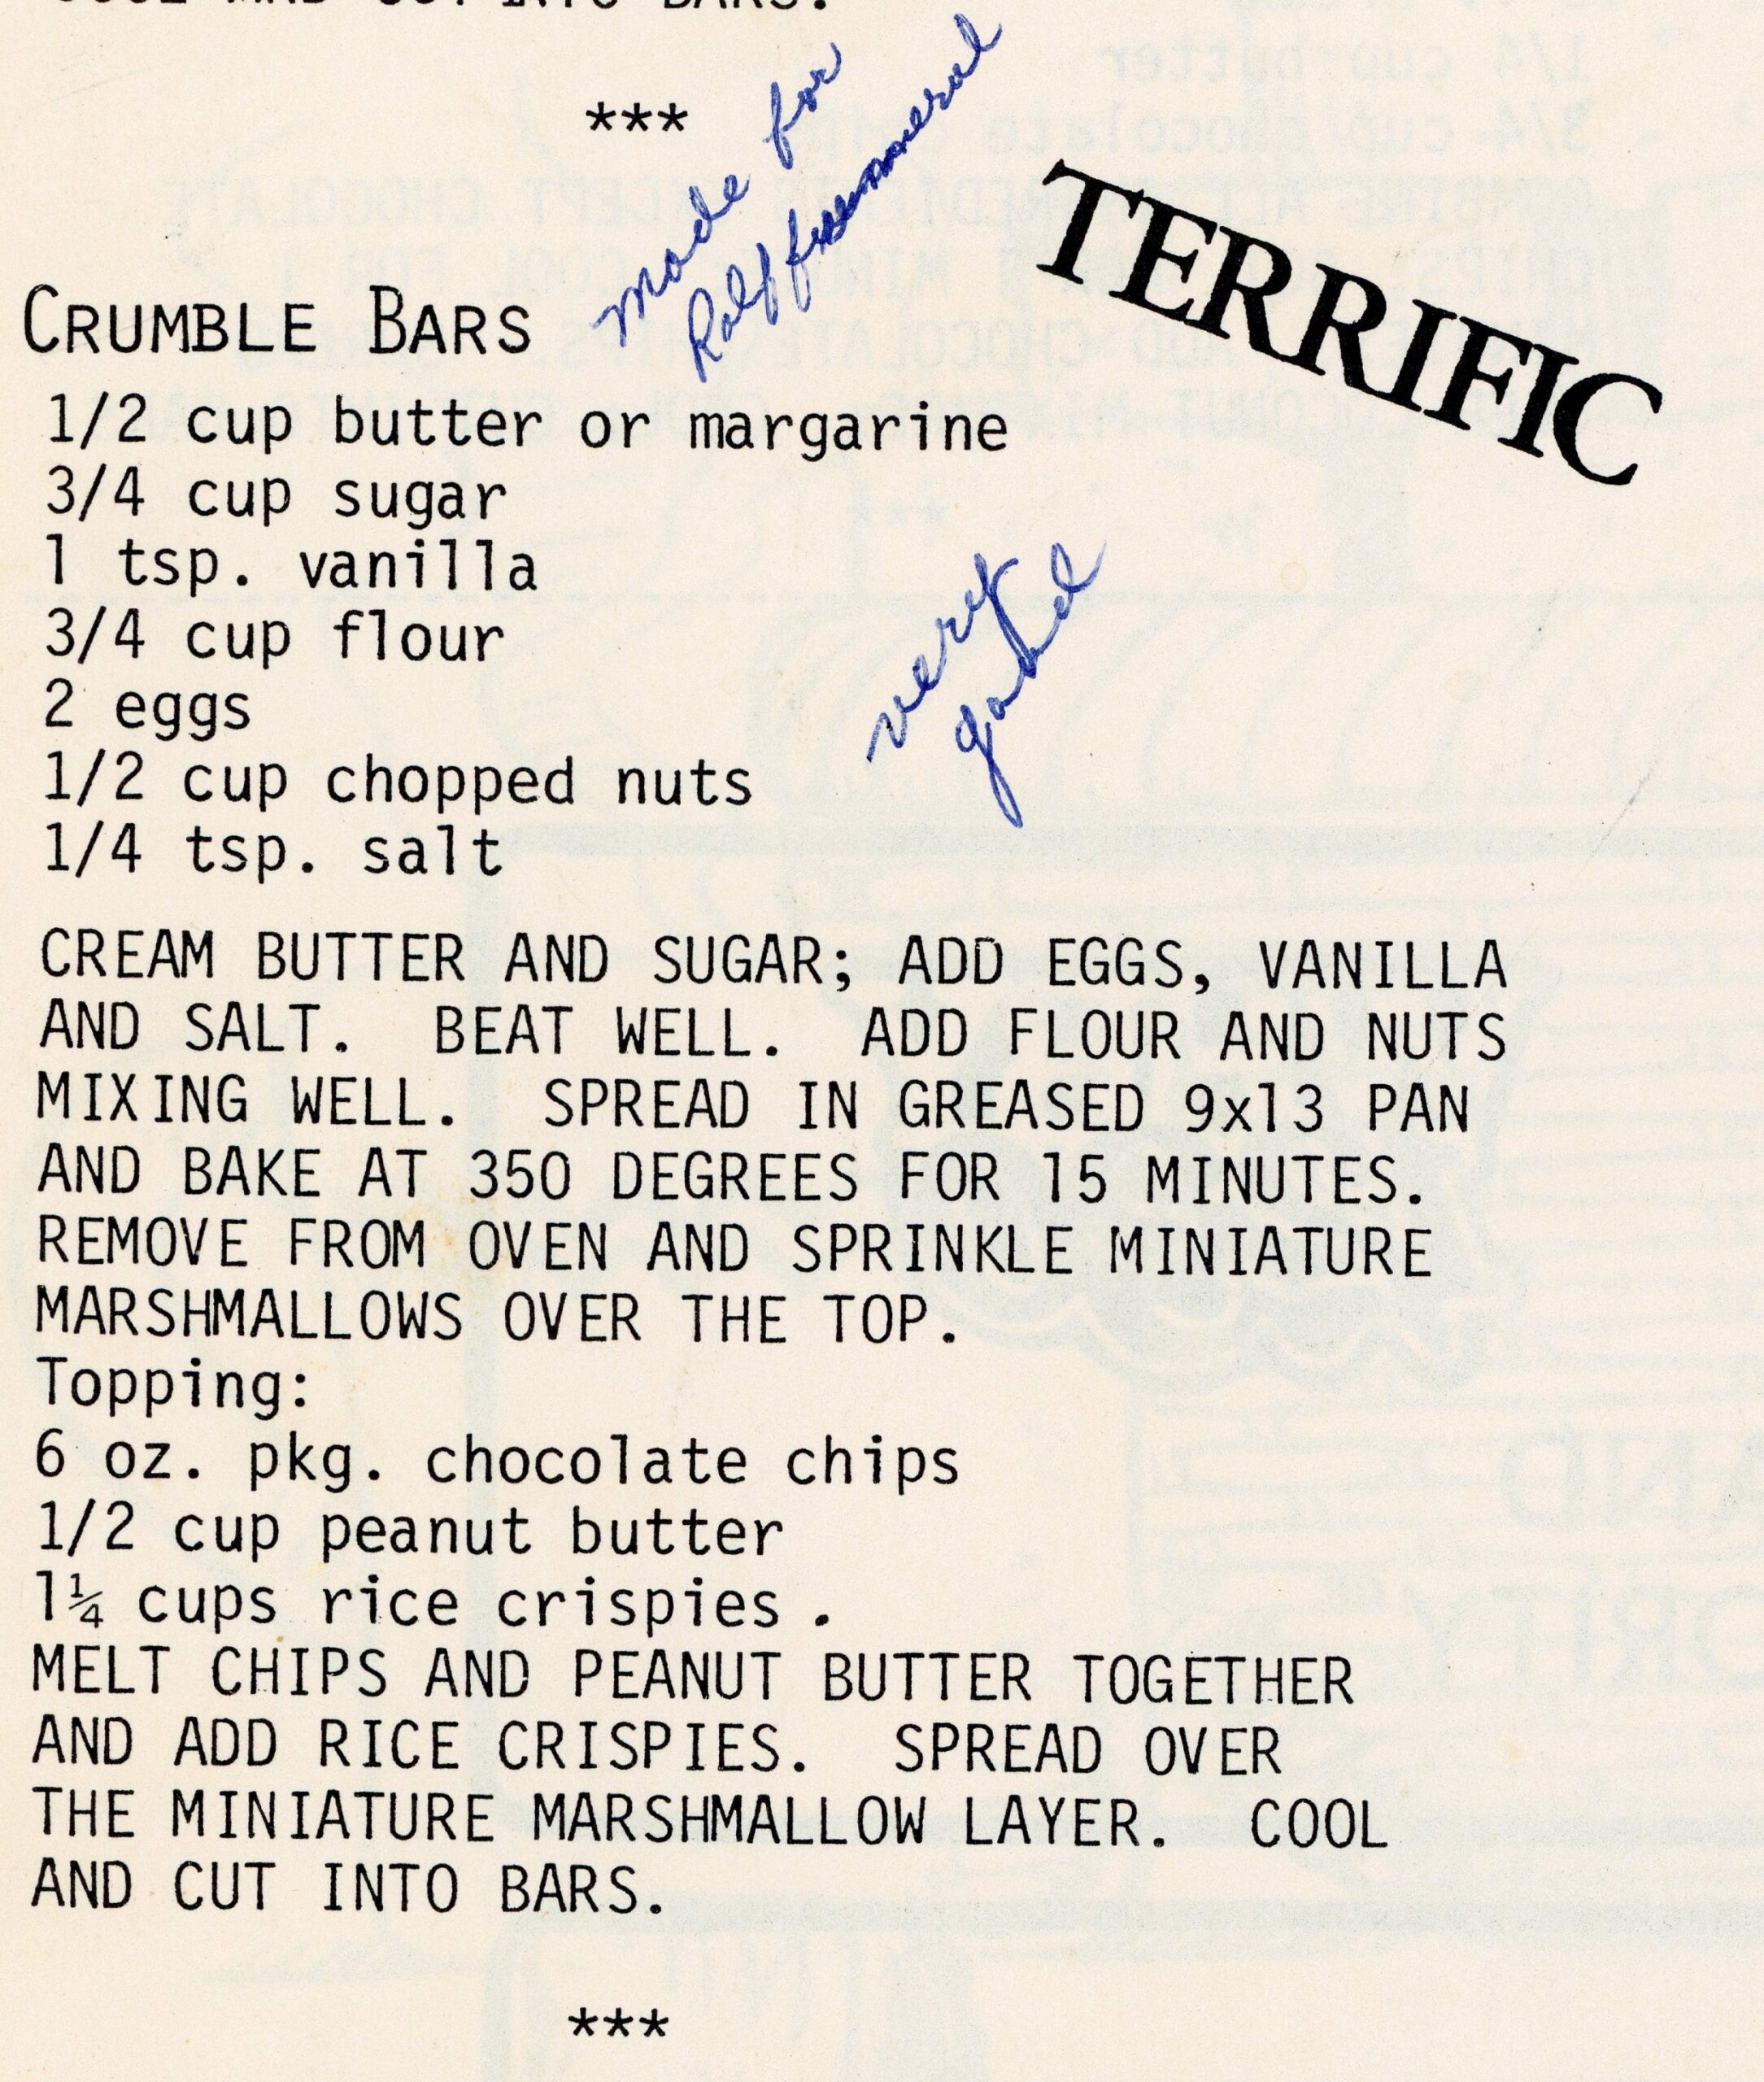 ***
made for
Ralf funeral
TERRIFIC
CRUMBLE BARS
1/2 cup butter or margarine
3/4 cup sugar
1 tsp. vanilla
3/4 cup flour
2 eggs
1/2 cup chopped nuts
1/4 tsp. salt
very
good
CREAM BUTTER AND SUGAR; ADD EGGS, VANILLA
AND SALT. BEAT WELL. ADD FLOUR AND NUTS
MIXING WELL. SPREAD IN GREASED 9x13 PAN
AND BAKE AT 350 DEGREES FOR 15 MINUTES.
REMOVE FROM OVEN AND SPRINKLE MINIATURE
MARSHMALLOWS OVER THE TOP.
Topping:
6 oz. pkg. chocolate chips
1/2 cup peanut butter
1¼ cups rice crispies .
MELT CHIPS AND PEANUT BUTTER TOGETHER
AND ADD RICE CRISPIES. SPREAD OVER
THE MINIATURE MARSHMALLOW LAYER. COOL
AND CUT INTO BARS.
***